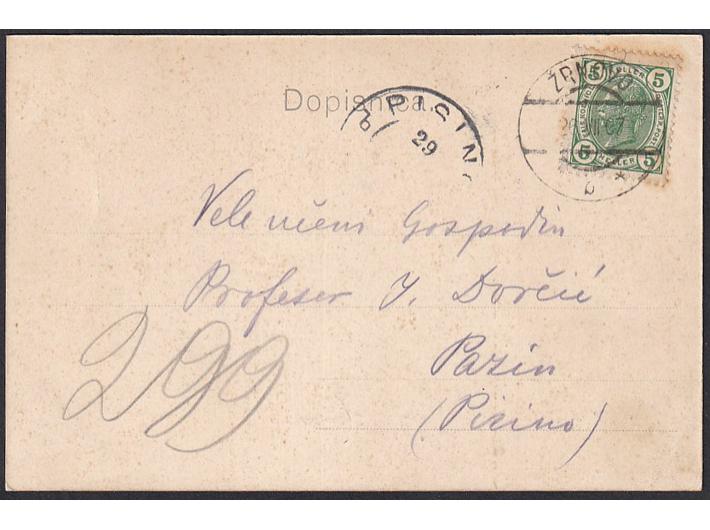 Dopisnica.
PISIN
29
b
ŽRNOVO
07
b
5 HELLER 5
5 HELLER 5
Vele učeni Gospodin
Profesor J. Dorčić
Pazin
(Pisino)
299